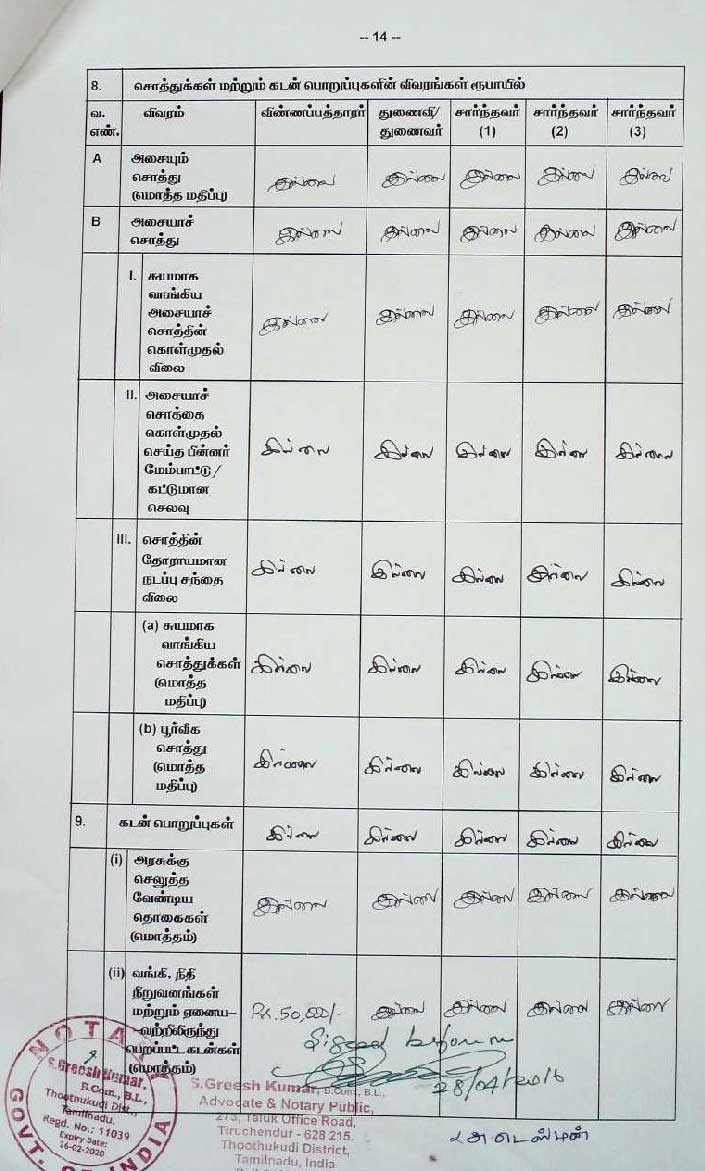 -- 14 --
8. சொத்துக்கள் மற்றும் கடன் பொறுப்புகளின் விவரங்கள் ரூபாயில்
வ. எண். விவரம் விண்ணப்பத்தாரர் துணைவி/ துணைவர் சார்ந்தவர் (1) சார்ந்தவர் (2) சார்ந்தவர் (3)
A அசையும்
சொத்து
(மொத்த மதிப்பு) இல்லை இல்லை இல்லை இல்லை இல்லை
B அசையாச்
சொத்து இல்லை இல்லை இல்லை இல்லை இல்லை
I. சுயமாக
வாங்கிய
அசையாச்
சொத்தின்
கொள்முதல்
விலை இல்லை இல்லை இல்லை இல்லை இல்லை
II. அசையாச்
சொத்தை
கொள்முதல்
செய்த பின்னர்
மேம்பாட்டு/
கட்டுமான
செலவு இல்லை இல்லை இல்லை இல்லை இல்லை
III. சொத்தின்
தோராயமான
நடப்பு சந்தை
விலை இல்லை இல்லை இல்லை இல்லை இல்லை
(a) சுயமாக
வாங்கிய
சொத்துக்கள்
(மொத்த
மதிப்பு) இல்லை இல்லை இல்லை இல்லை இல்லை
(b) பூர்வீக
சொத்து
(மொத்த
மதிப்பு) இல்லை இல்லை இல்லை இல்லை இல்லை
9. கடன் பொறுப்புகள் இல்லை இல்லை இல்லை இல்லை இல்லை
(i) அரசுக்கு
செலுத்த
வேண்டிய
தொகைகள்
(மொத்தம்) இல்லை இல்லை இல்லை இல்லை இல்லை
(ii) வங்கி, நிதி
நிறுவனங்கள்
மற்றும் ஏனைய-
-வற்றிலிருந்து
பெறப்பட்ட கடன்கள்
(மொத்தம்) Rs.50,000/- இல்லை இல்லை இல்லை இல்லை
Signed before me
28/04/2016
NOTARY
S.Greesh Kumar,
B.Com., B.L.,
Thoothukudi Dist.,
Tamilnadu.
Regd. No.: 11039
Expiry Date:
26-02-2020
GOVT. OF INDIA
S.Greesh Kumar, B.Com., B.L.,
Advocate & Notary Public,
273, Taluk Office Road,
Tiruchendur - 628 215.
Thoothukudi District,
Tamilnadu, India